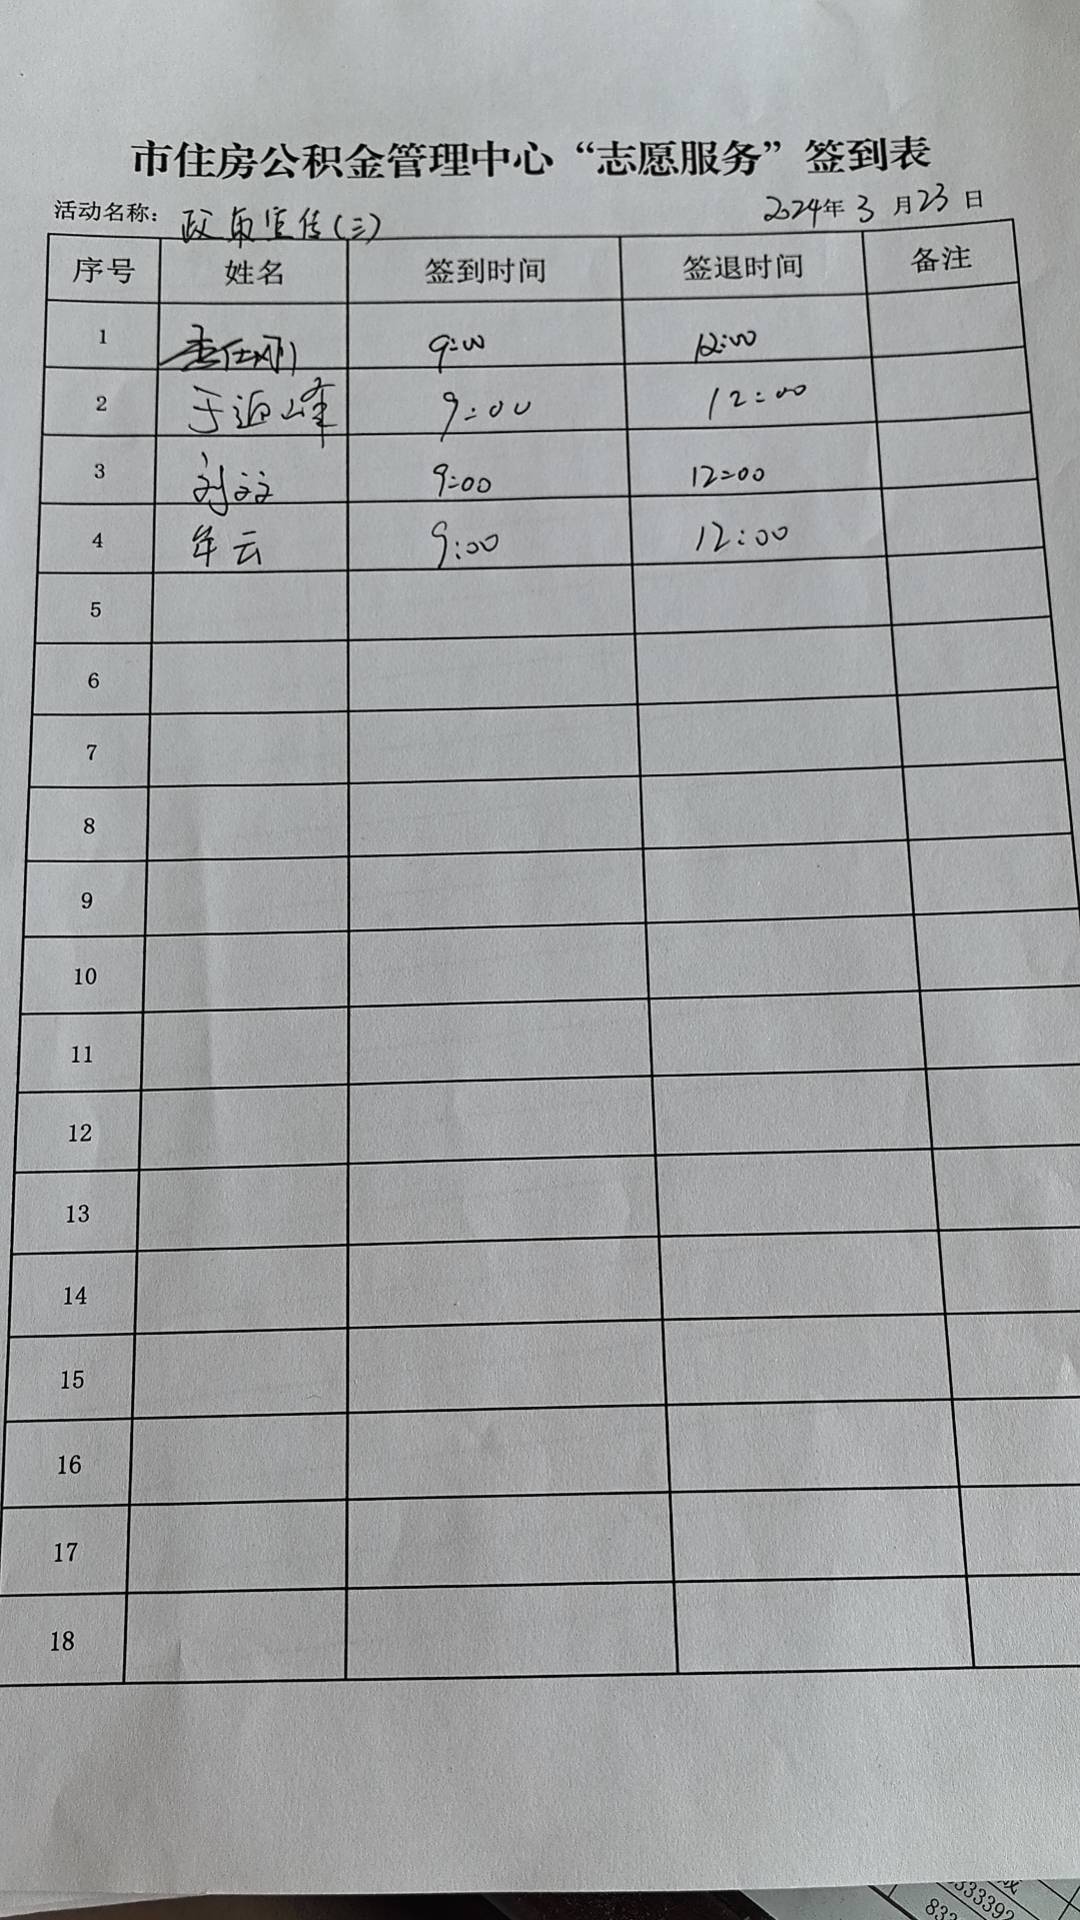 市住房公积金管理中心“志愿服务”签到表
活动名称：政策宣传(三) 2024年3月23日
序号 姓名 签到时间 签退时间 备注
1 9:00 12:00
2 于迎峰 9:00 12:00
3 刘文 9:00 12:00
4 牟云 9:00 12:00
5
6
7
8
9
10
11
12
13
14
15
16
17
18
333392
833